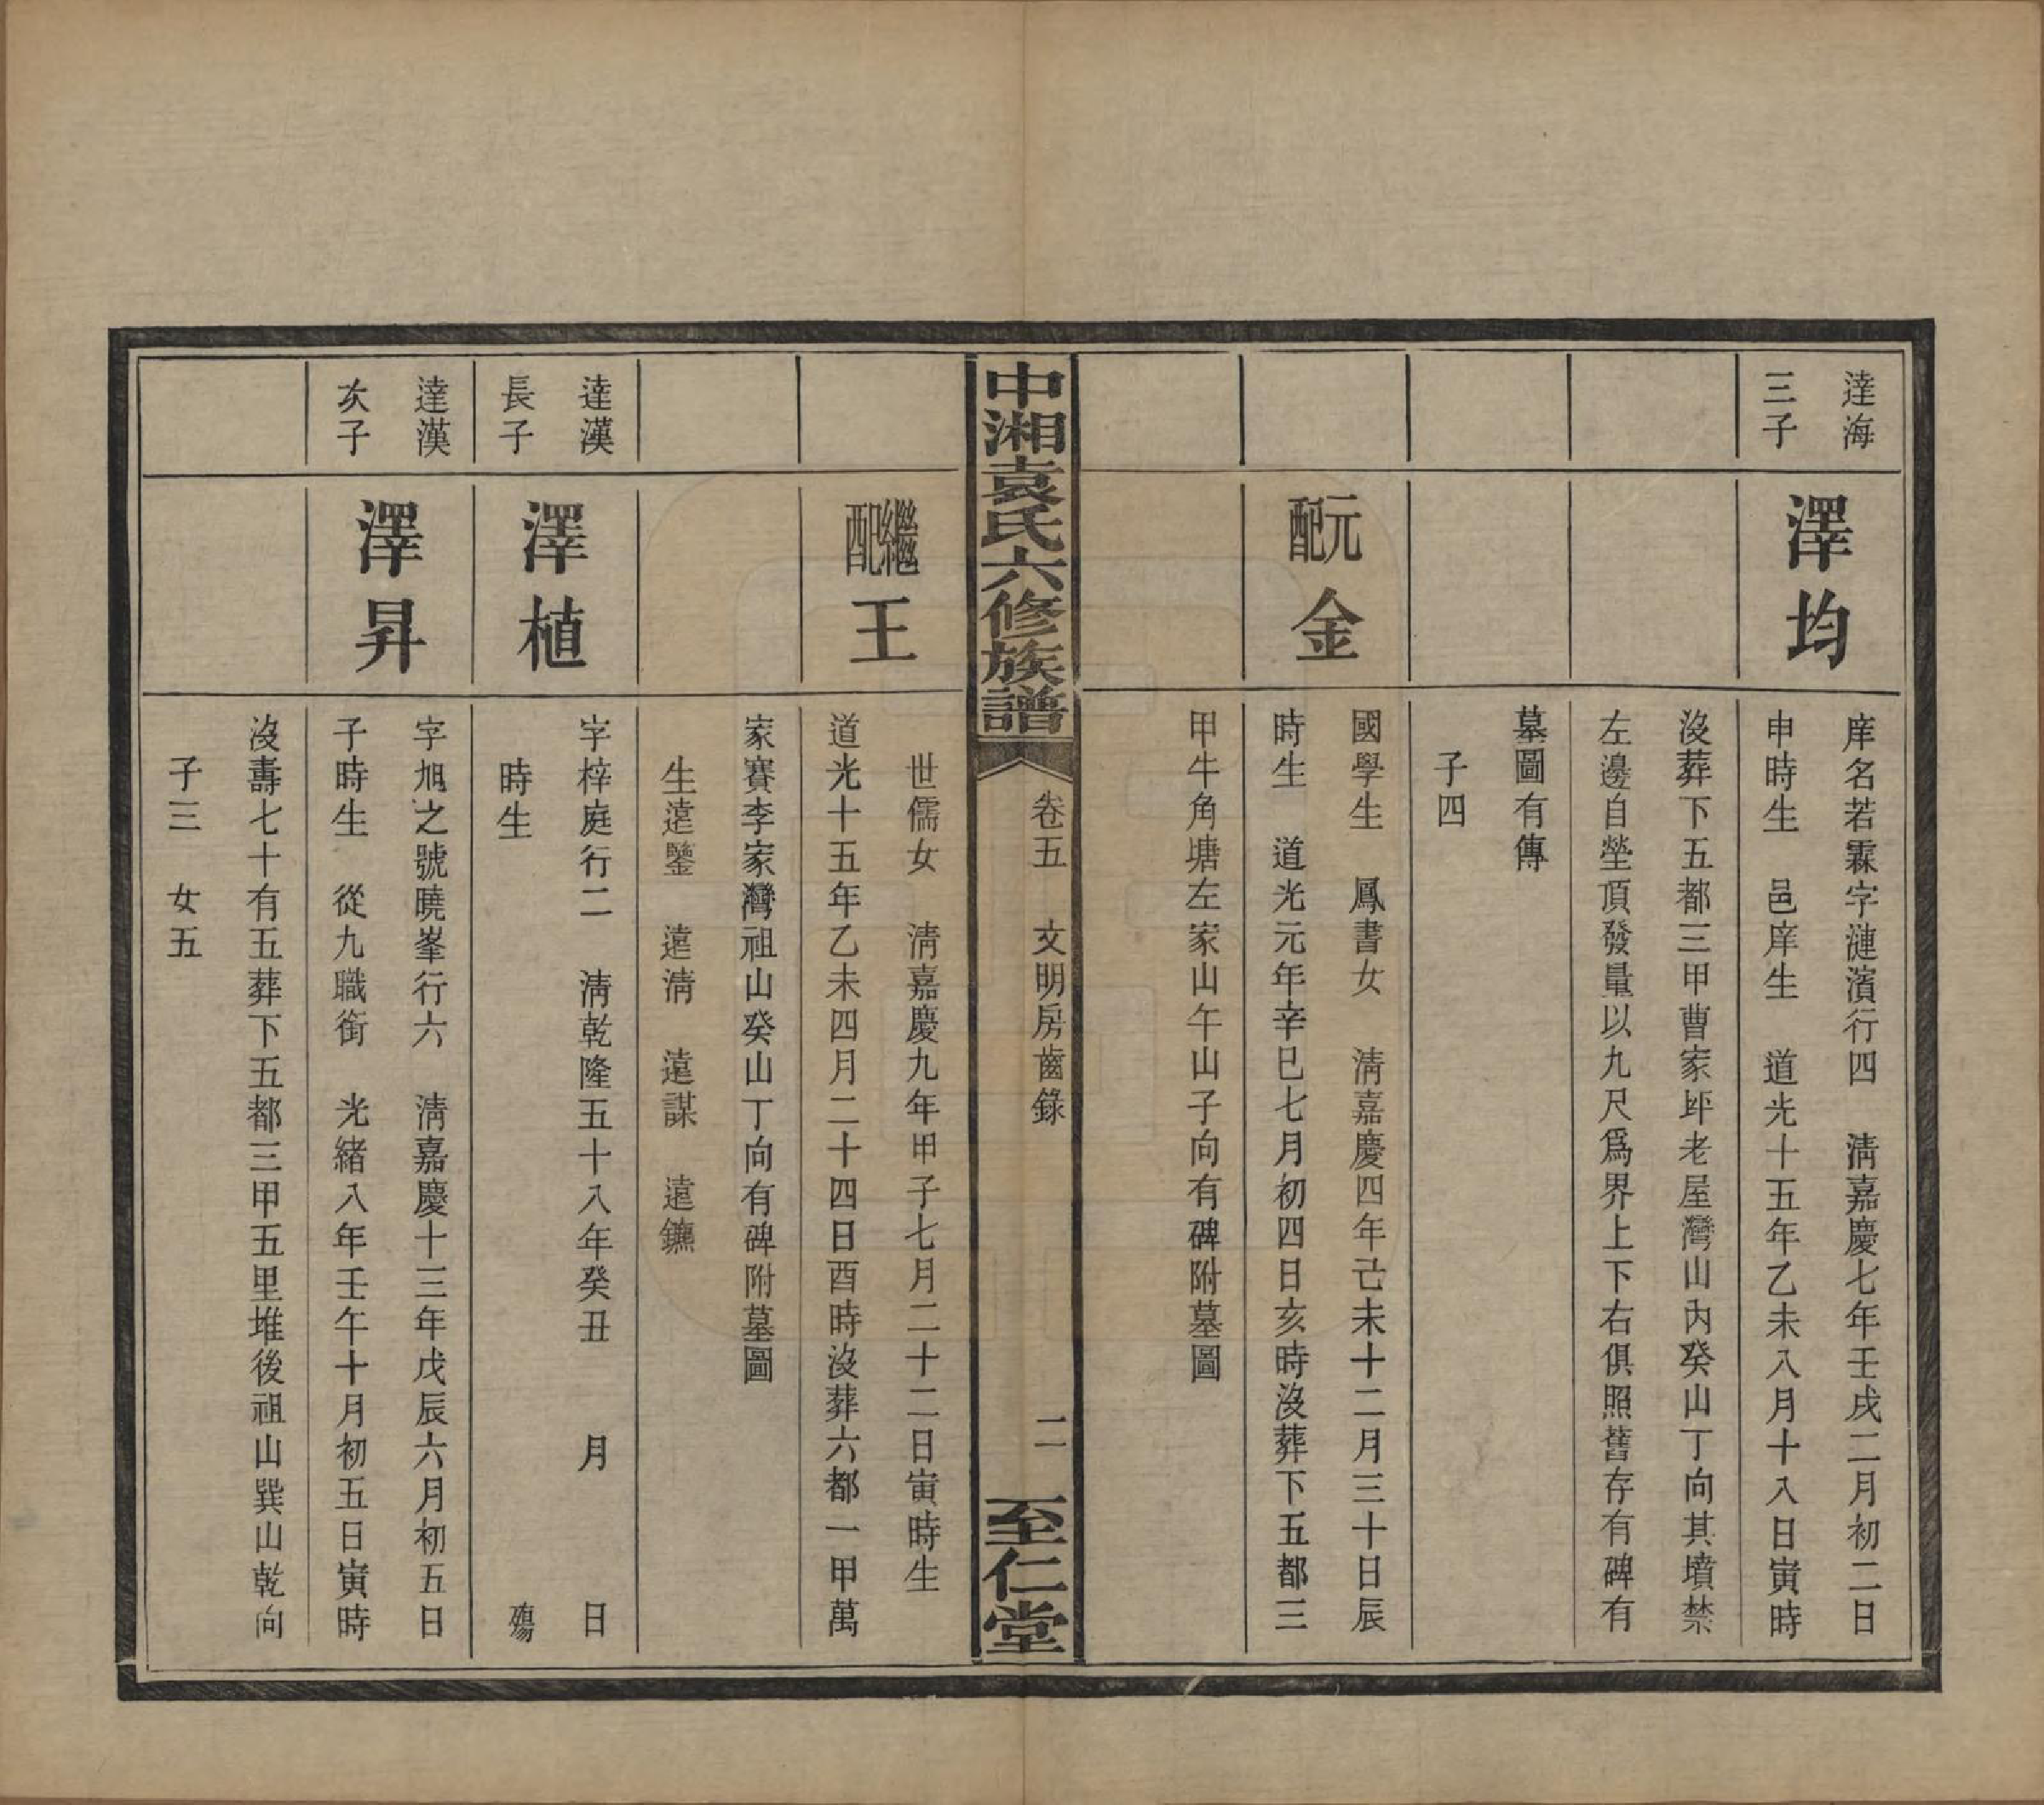 達海
三子
澤均
庠名若霖字漣濱行四　清嘉慶七年壬戌二月初二日
申時生　邑庠生　道光十五年乙未八月十八日寅時
沒葬下五都三甲曹家坪老屋灣山內癸山丁向其墳禁
左邊自塋頂發量以九尺爲界上下右俱照舊存有碑有
墓圖有傳
子四
元配
金
國學生　鳳書女　清嘉慶四年己未十二月三十日辰
時生　道光元年辛巳七月初四日亥時沒葬下五都三
甲牛角塘左家山午山子向有碑附墓圖
中湘袁氏六修族譜
卷五　文明房齒錄
二
至仁堂
繼配
王
世儒女　清嘉慶九年甲子七月二十二日寅時生
道光十五年乙未四月二十四日酉時沒葬六都一甲萬
家賽李家灣祖山癸山丁向有碑附墓圖
生遠鑒　遠清　遠謀　遠鑣
達漢
長子
澤植
字梓庭行二　清乾隆五十八年癸丑　月　日
時生　殤
達漢
次子
澤昇
字旭之號曉峯行六　清嘉慶十三年戊辰六月初五日
子時生　從九職銜　光緒八年壬午十月初五日寅時
沒壽七十有五葬下五都三甲五里堆後祖山巽山乾向
子三　女五